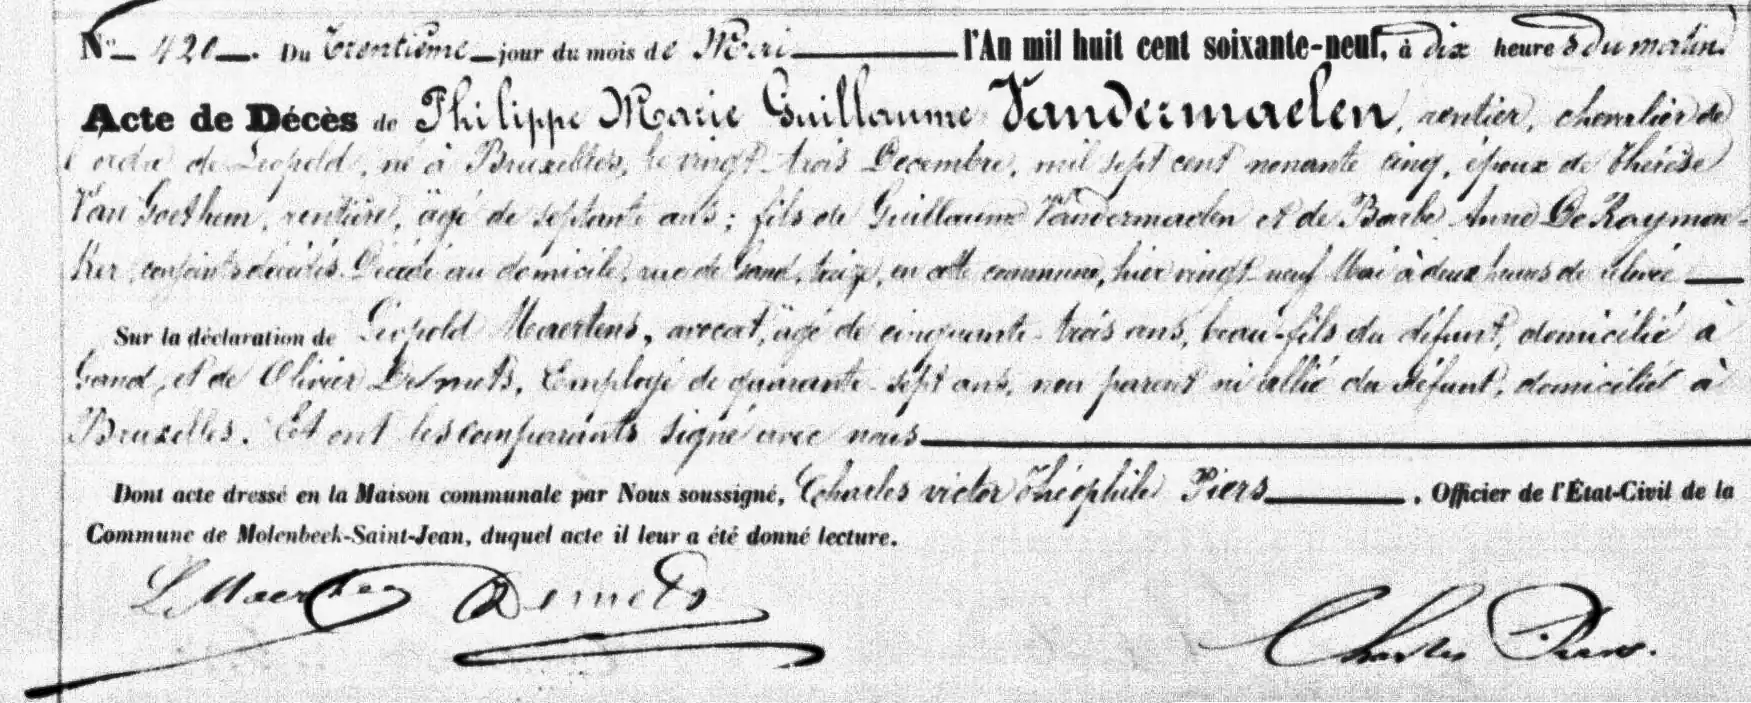 No 420. Du Trentième jour du mois de Mai l'An mil huit cent soixante-neuf, à dix heures du matin.
Acte de Décès de Philippe Marie Guillaume Vandermaelen, rentier, chevalier de
l'ordre de Léopold, né à Bruxelles, le vingt trois Décembre, mil sept cent nonante cinq, époux de Thérèse
Van Goethem, rentière, âgé de septante ans; fils de Guillaume Vandermaelen et de Barbe Anne De Raymae-
ker, conjoints décédés. Décédé au domicile, rue de Gand, treize, en cette commune, hier vingt neuf Mai à deux heures de relevée
Sur la déclaration de Léopold Maertens, avocat, âgé de cinquante-trois ans, beau-fils du défunt, domicilié à
Gand, et de Olivier Desmets, Employé de quarante-sept ans, non parent ni allié du défunt, domicilié à
Bruxelles. Et ont les comparants signé avec nous
Dont acte dressé en la Maison communale par Nous soussigné, Charles victor Théophile Piers, Officier de l'État-Civil de la
Commune de Molenbeek-Saint-Jean, duquel acte il leur a été donné lecture.
L Maertens Charles Piers.